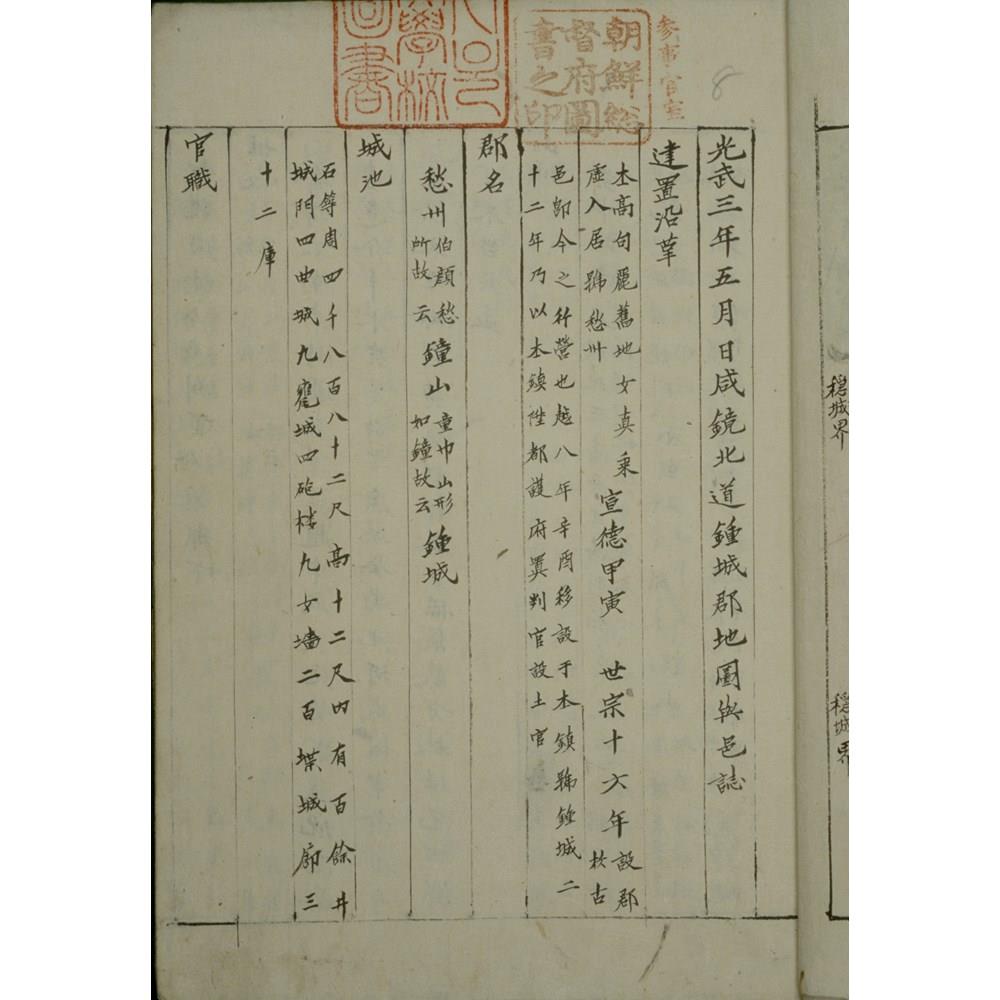 穩城界
穩城界
8
参事官室
朝鮮総
督府圖
書之印
學校
圖書
光武三年五月日咸鏡北道鍾城郡地圖與邑誌
建置沿革
本高句麗舊地女真乘
虛入居號愁州
宣德甲寅 世宗十六年
設郡
於古
邑卽今之行營也越八年辛酉移設于本鎭號鍾城二
十二年乃以本鎭陞都護府置判官設土官
郡名
愁州
伯顔愁
所故云
鐘山
童巾山形
如鐘故云
鍾城
城池
石築周四千八百八十二尺高十二尺內有百餘井
城門四曲城九甕城四砲樓九女墻二百堞城廊三
十二庫
官職